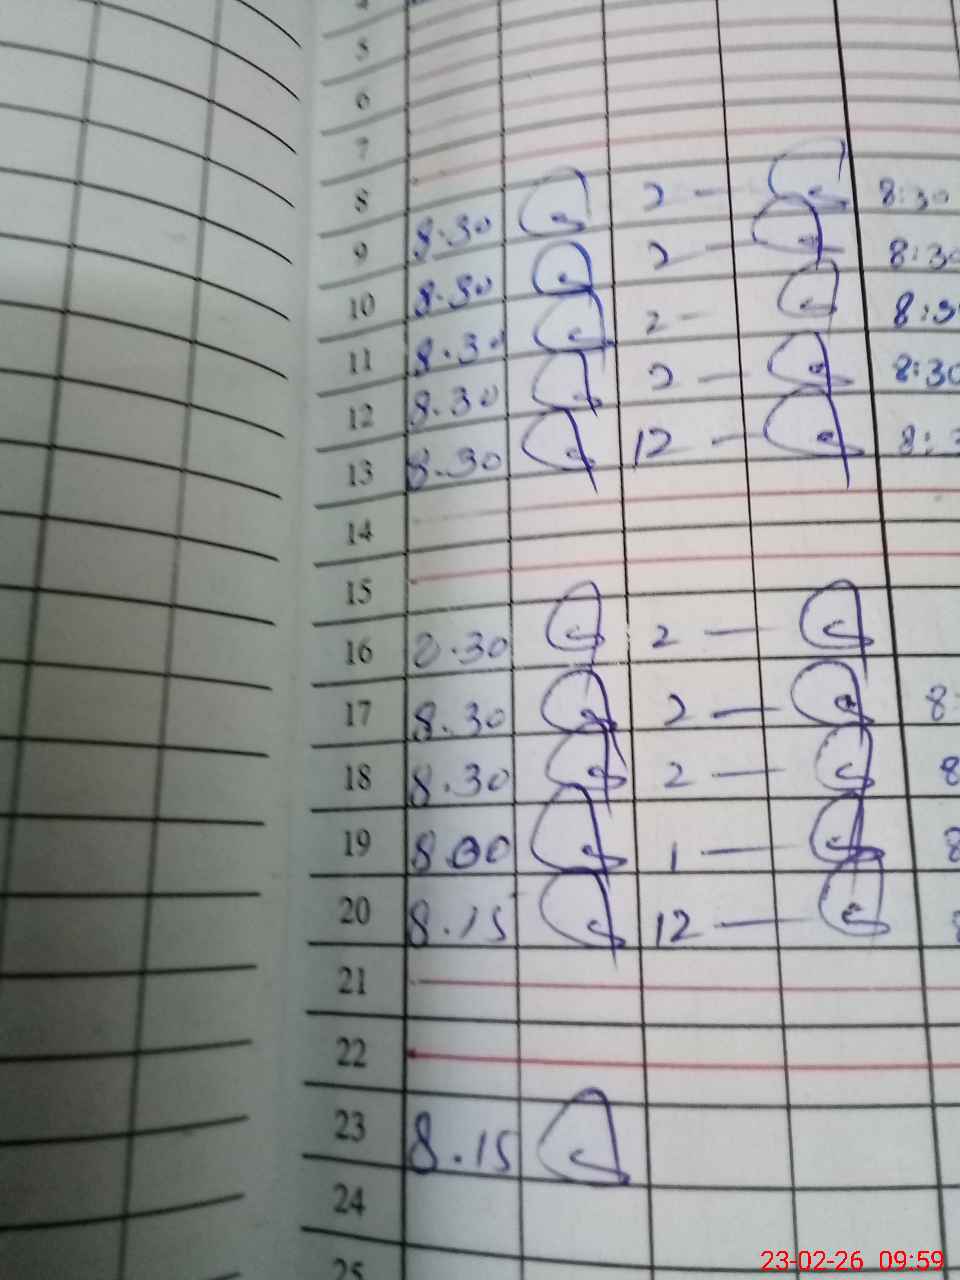 5
6
7
8 8.30 2 — 8:30
9 8.30 2 — 8:30
10 8.30 2 —
11 8.30 2 — 8:30
12 8.30 12 —
13
14
15
16 8.30 2 —
17 8.30 2 — 8
18 8.30 2 — 8
19 8.00 1 — 8
20 8.15 12 —
21
22
23 8.15
24
25
23-02-26 09:59